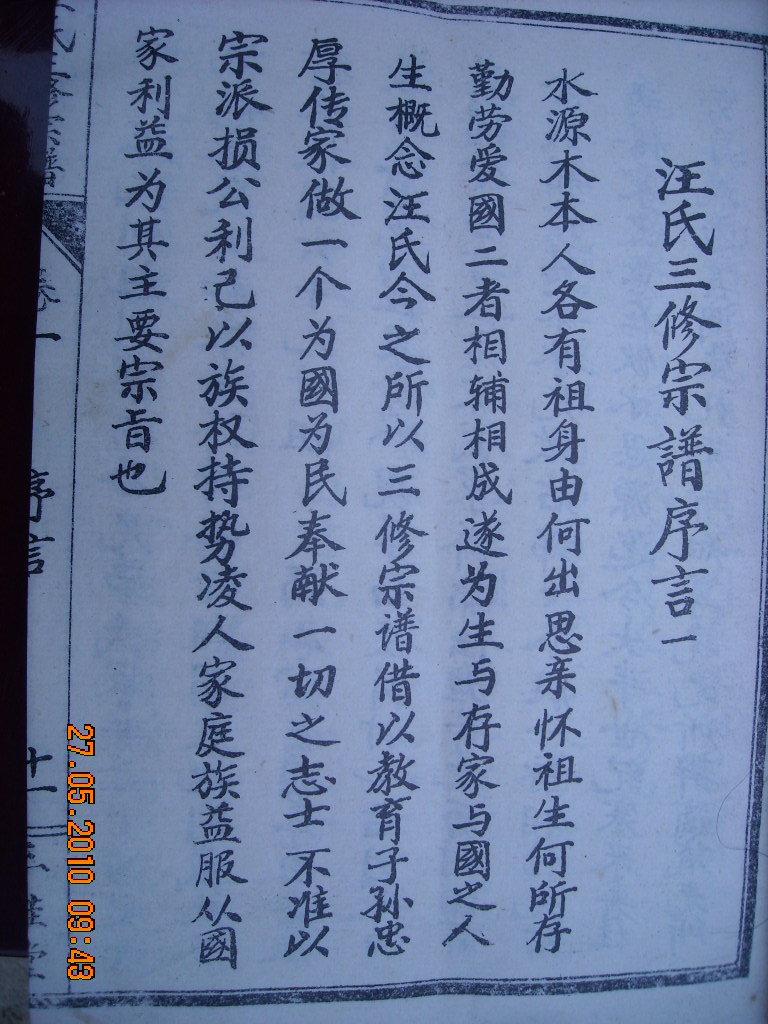 汪氏三修宗譜序言一
水源木本人各有祖身由何出思亲怀祖生何所存
勤劳愛國二者相辅相成遂为生与存家与國之人
生概念汪氏今之所以三修宗谱借以教育子孙忠
厚传家做一个为國为民奉献一切之志士不准以
宗派损公利己以族权持势凌人家庭族益服从國
家利益为其主要宗旨也
卷一
序言
十一
27.05.2010 09:43